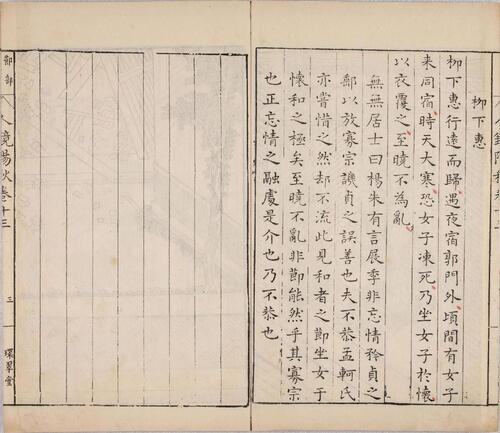 柳下惠
柳下惠行遠而歸遇夜宿郭門外頃間有女子
来同宿時天大寒恐女子凍死乃坐女子於懷
以衣覆之至曉不為亂
無無居士曰楊朱有言展季非忘情矜貞之
郵以放寡宗譏貞之誤善也夫不恭孟軻氏
亦嘗惜之然却不流此見和者之節坐女于
懷和之極矣至曉不亂非節能然乎其寡宗
也正忘情之融處是介也乃不恭也
人鏡陽秋卷十三
三
環翠堂